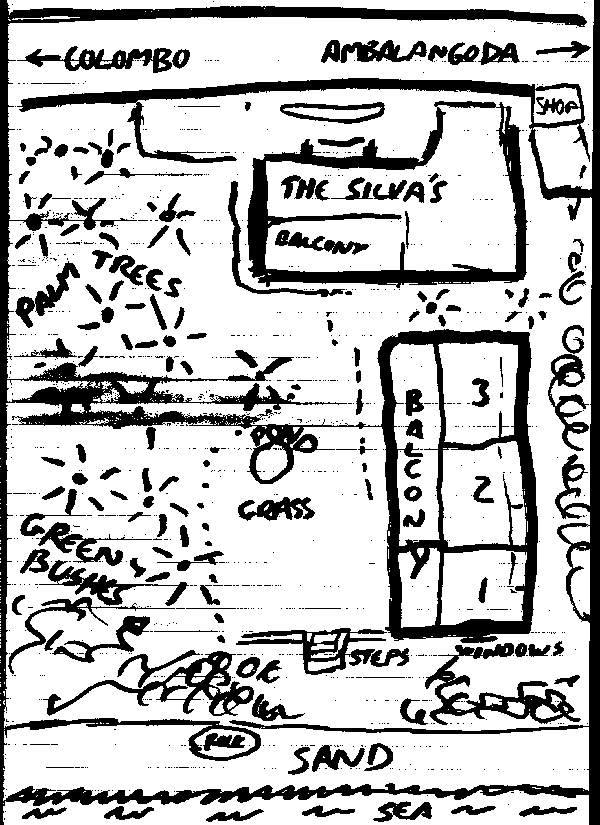 ← COLOMBO
AMBALANGODA →
SHOP
THE SILVA'S
BALCONY
PALM TREES
BALCONY
3
2
1
POND
GRASS
GREEN
BUSHES
STEPS
WINDOWS
SAND
SEA